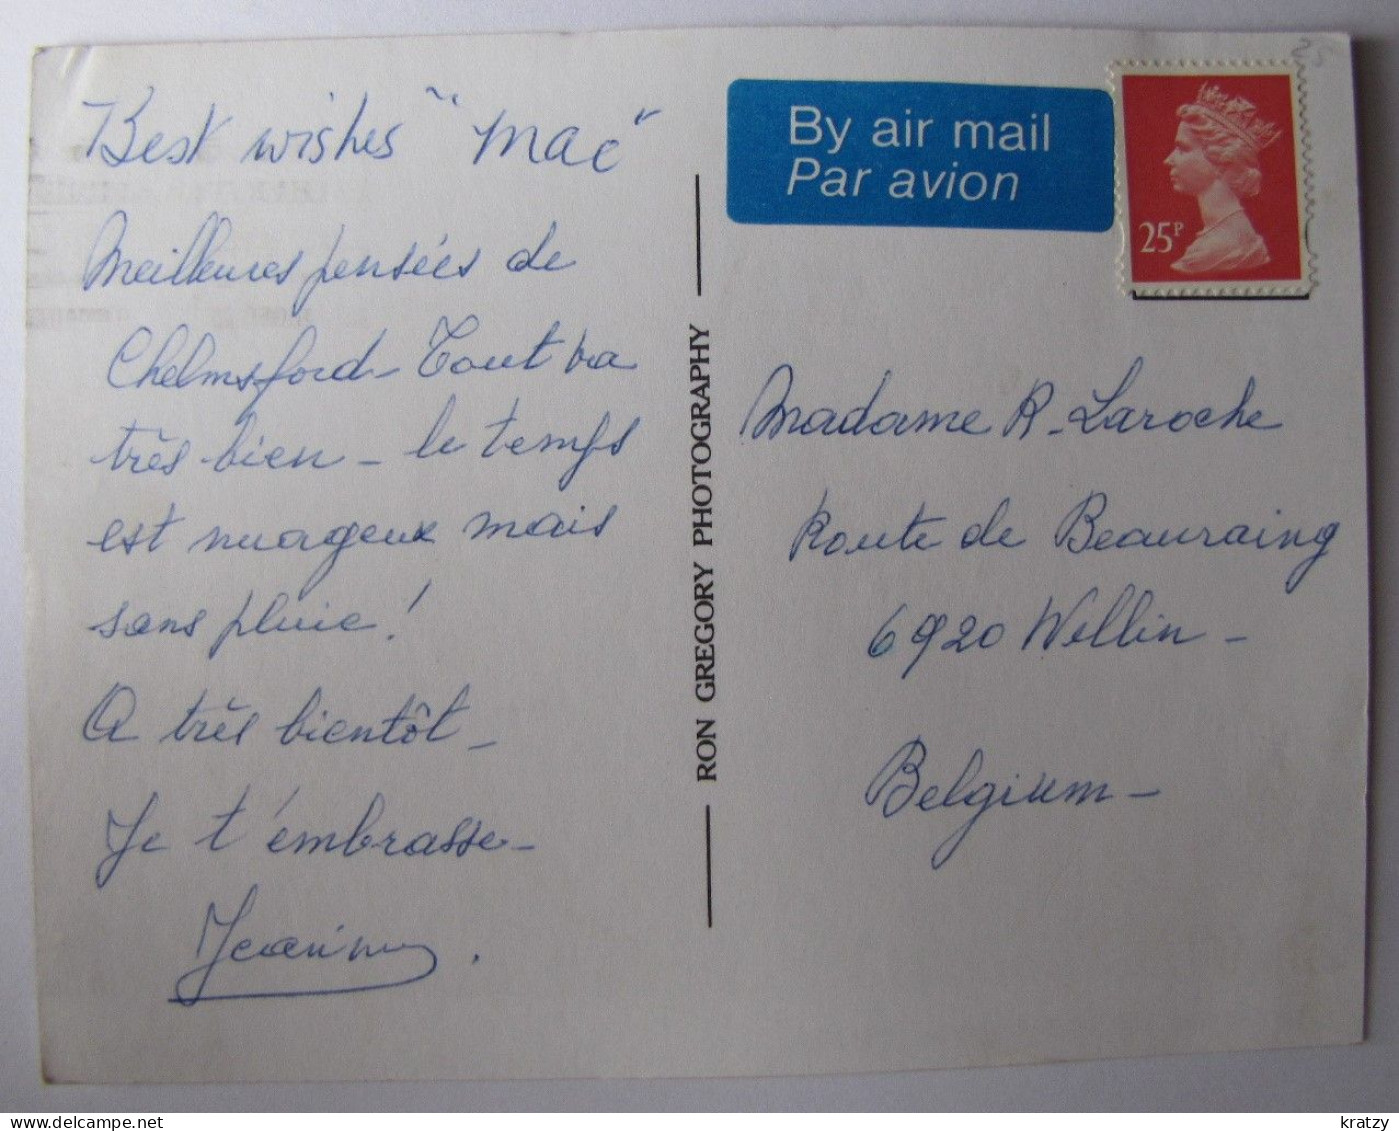 Best wishes "Mac"
Meilleures pensées de
Chelmsford - Tout va
très bien - le temps
est nuageux mais
sans pluie !
A très bientôt -
Je t'embrasse -
By air mail
Par avion
25P
RON GREGORY PHOTOGRAPHY
Madame R. Laroche
Route de Beauraing
6920 Wellin -
Belgium -
delcampe.net
kratzy